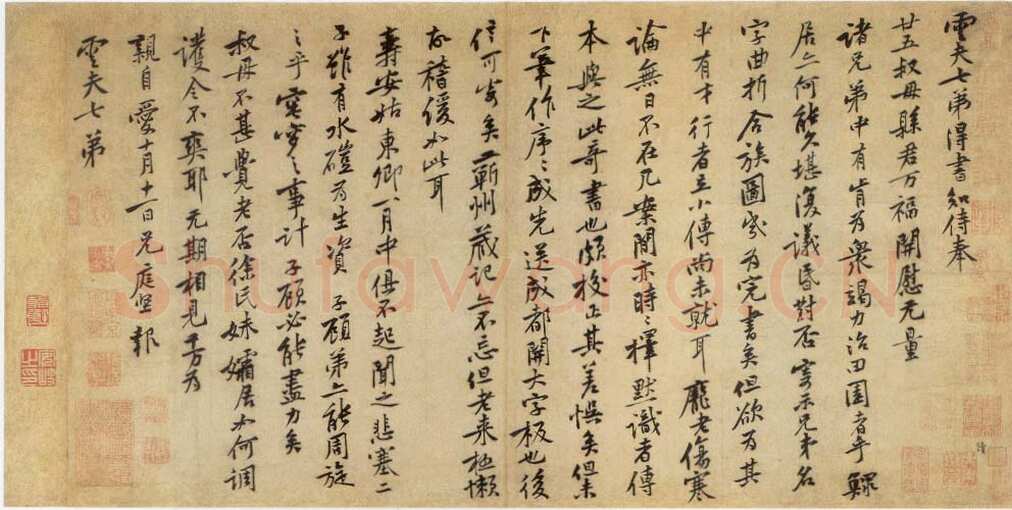 雲夫七弟得書知侍奉
廿五叔母縣君万福開慰无量
諸兄弟中有肯為衆竭力治田園者乎鰥
居亦何能久堪復議昏對否寄示兄弟名
字曲折合族圖幾為完書矣但欲為其
中有才行者立小傳尚未就耳龐老傷寒
論無日不在几案間亦時〻擇默識者傳
本與之此奇書也頗校正其差悞矣但未
下筆作序〻成先送成都開大字板也後
信可寄矣蘄州藏記亦不忘但老来極懶
故稽緩如此耳
壽安姑東卿一月中俱不起聞之悲塞二
子雖有水磑為生資子顧弟亦能周旋
之乎窀穸之事計子顧必能盡力矣
叔母不甚覺老否徐氏妹孀居如何調
護令不爽耶元期相見千万為
親自愛十月十一日兄庭堅報
雲夫七弟
Shufawang.CN